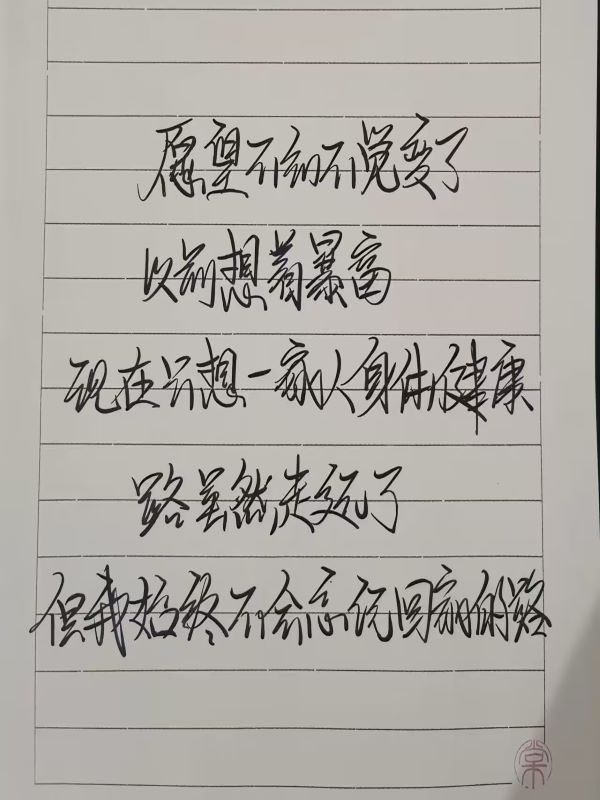 愿望不知不觉变了
以前想着暴富
现在只想一家人身体健康
路虽然走远了
但我始终不会忘记回家的路
棠